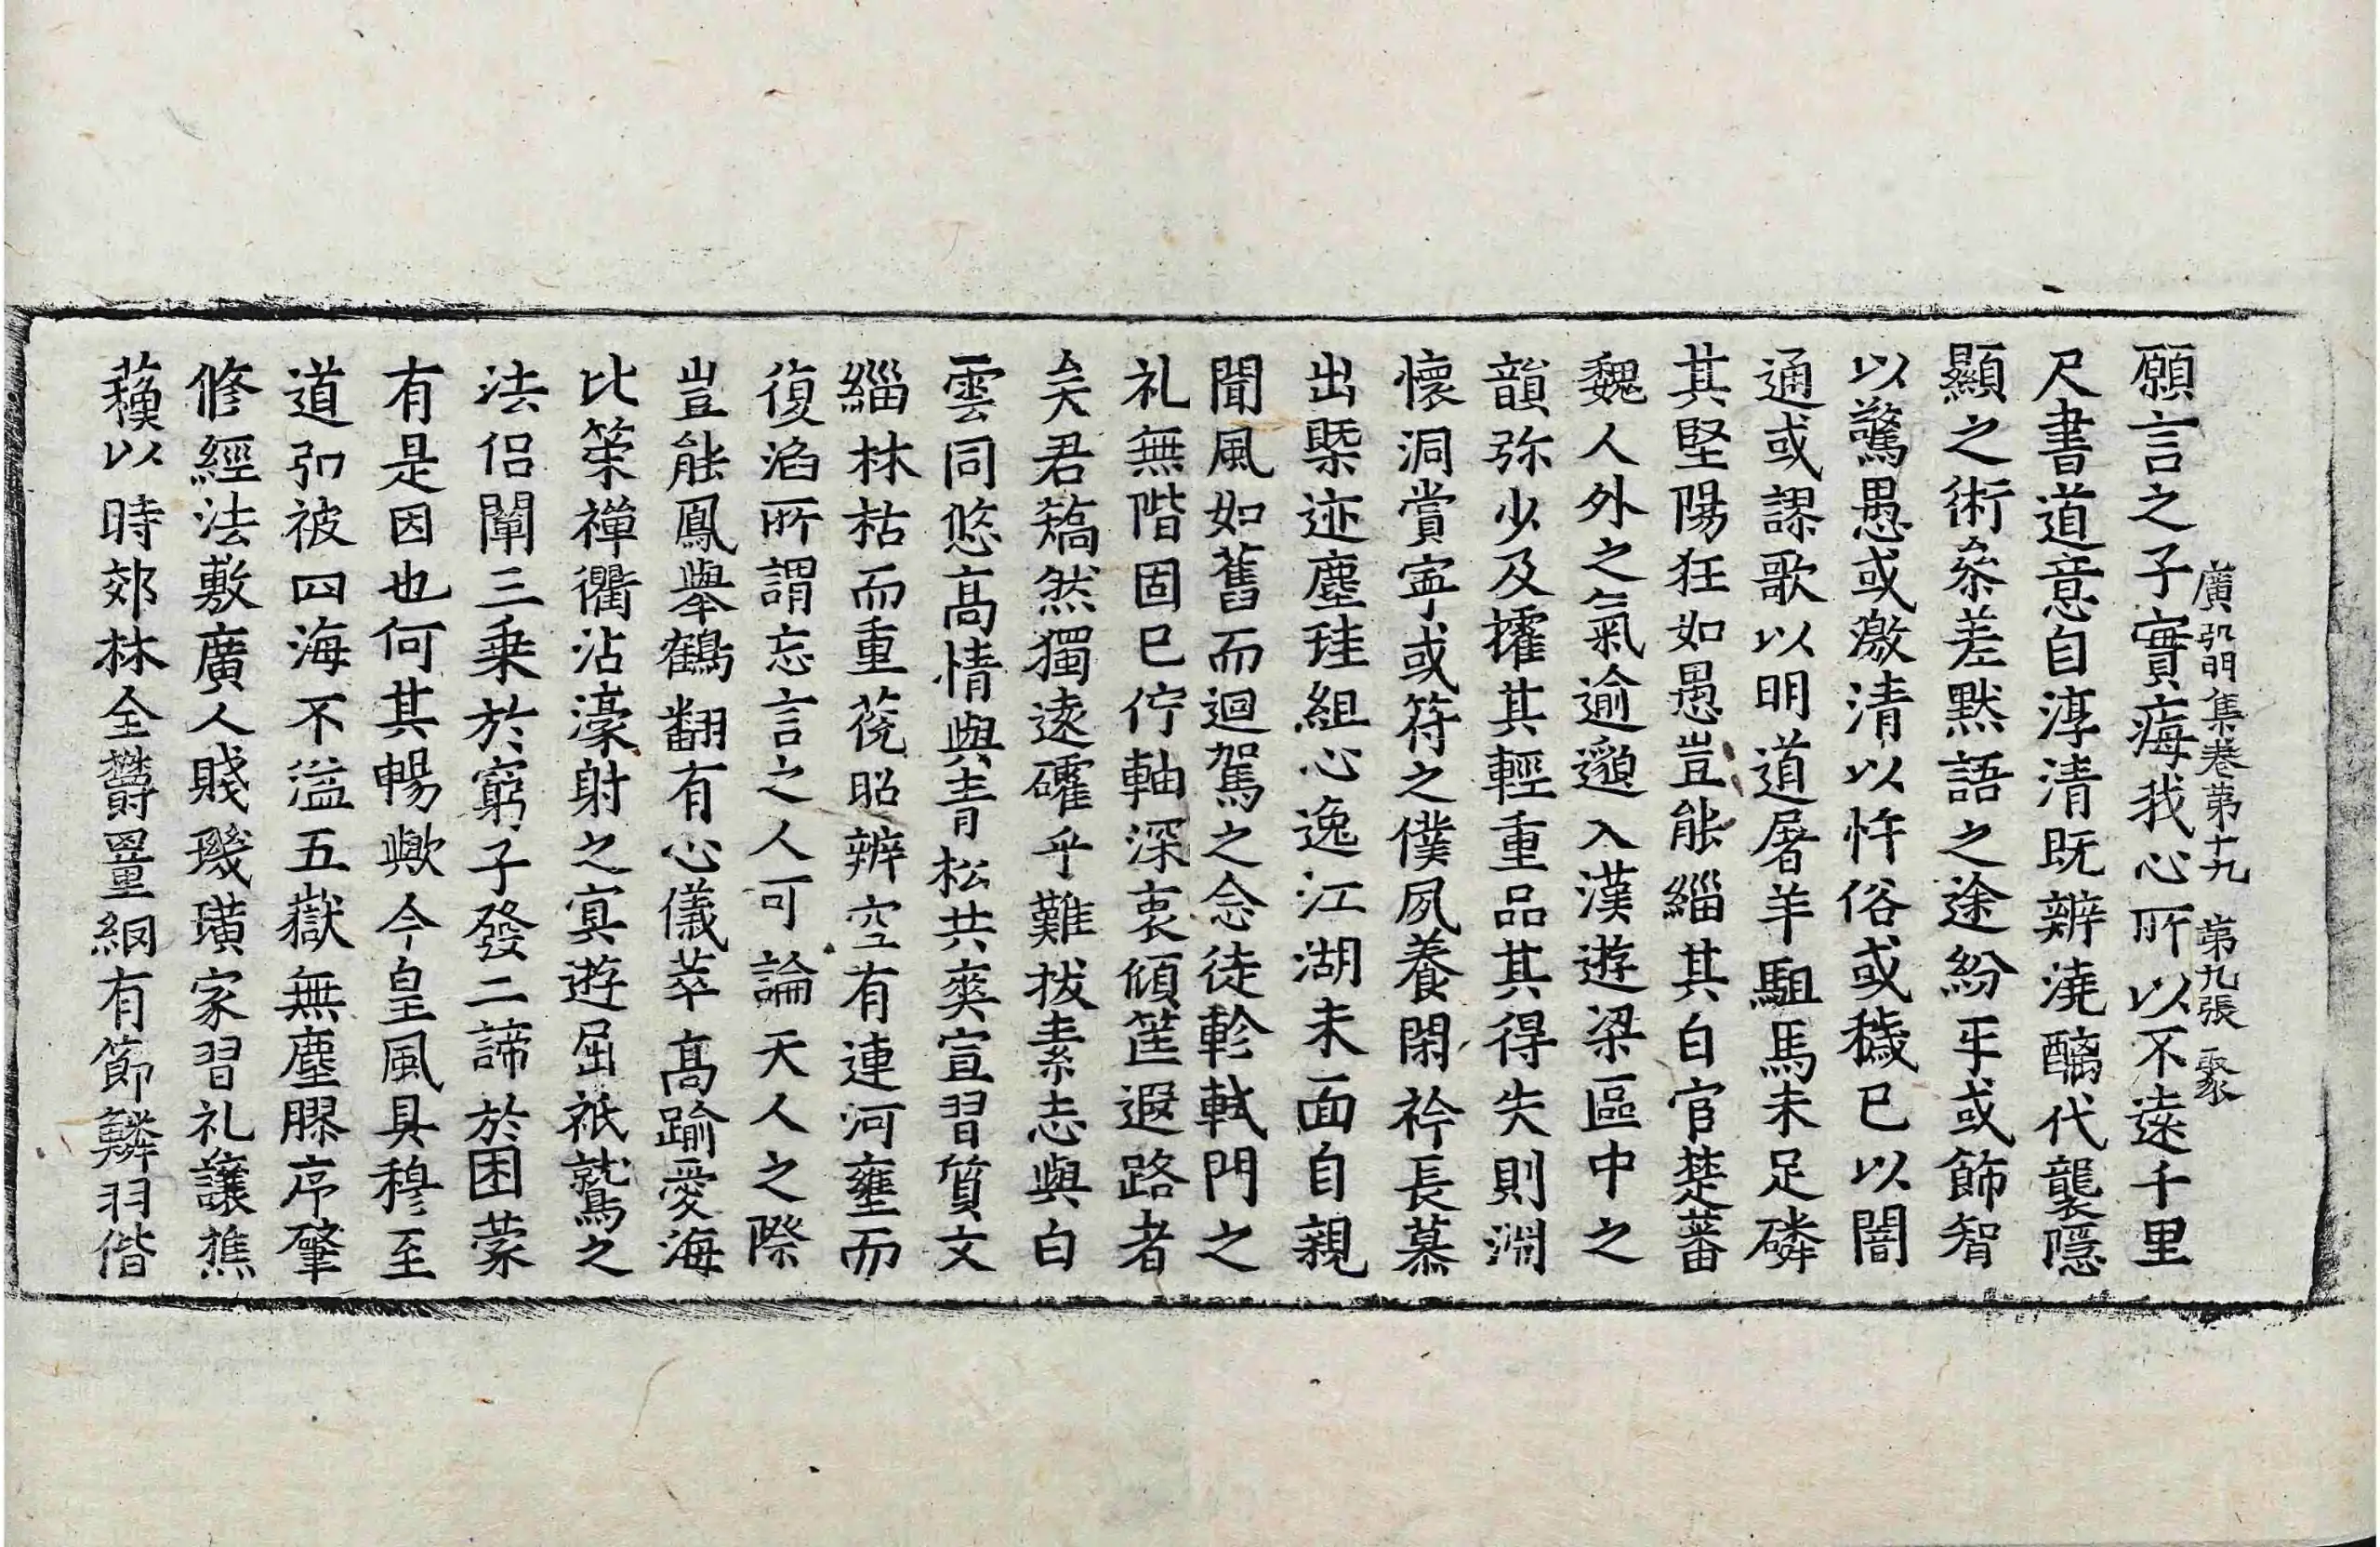 廣弘明集卷第十九　第九張　聚
願言之子實痗我心所以不遠千里
尺書道意自淳清既辨澆醨代襲隱
顯之術叅差黙語之途紛乎或飾智
以驚愚或激清以忤俗或穢已以闇
通或謬歌以明道屠羊駔馬未足磷
其堅陽狂如愚豈能緇其白官楚蕃
魏人外之氣逾邈入漢遊梁區中之
韻弥少及㩴其輕重品其得失則淵
懷洞賞寕或符之僕夙養閑衿長慕
出𣗥迹塵珪組心逸江湖未面自親
聞風如舊而迴駕之念徒軫軾門之
礼無階固已佇軸深衷傾筐遐路者
矣君矯然獨遠確乎難拔素志與白
雲同悠髙情與青松共爽宣習質文
緇林枯而重蒄昭辨空有連河壅而
復㴞所謂忘言之人可論天人之際
豈能鳳舉鶴翻有心儀萃髙踰愛海
比䇿禪衢沾濠射之㝠遊屈祇鷲之
法侣闡三乗於窮子發二諦於困蒙
有是因也何其暢歟今皇風具穆至
道弘被四海不溢五嶽無塵膠序肇
修經法敷廣人賤璣璜家習礼讓樵
蘓以時郊林全欝罿綱有節鱗羽偕